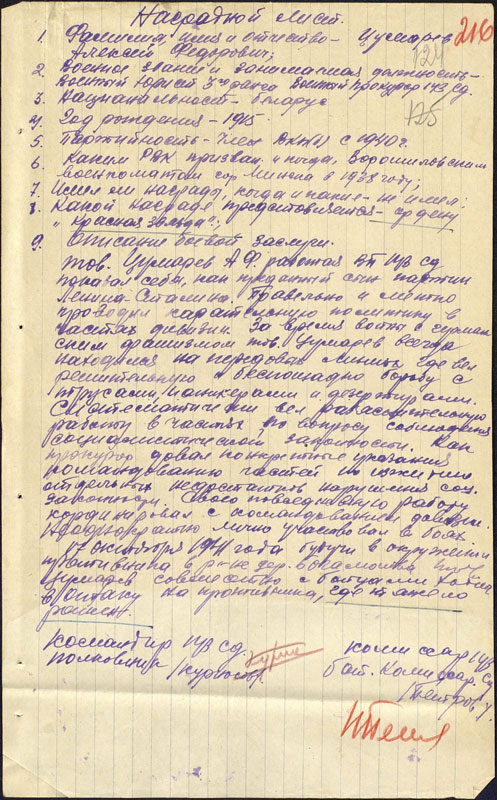 Наградной лист.
216
124
125
1. Фамилия, имя и отчество - Цумарев
Алексей Федорович;
2. Военное звание и занимаемая должность -
Военный Юрист 3го ранга Военный прокурор 143 сд.
3. Национальность - беларус
4. Год рождения - 1915.
5. Партийность - член ВКП(б) с 1940 г.
6. Каким РВК призван и когда, Ворошиловским
военкоматом гор Минска в 1938 году;
7. Имел ли награды, когда и какие - не имел;
8. Какой награде представляется - ордену
"Красная звезда";
9. Описание боевой заслуги.
Тов. Цумарев А.Ф. работая ВП 143 сд
показал себя, как преданный сын партии
Ленина-Сталина. Правильно и
проводил карательную политику в
частях дивизии. За время войны с герман
ским фашизмом тов. Цумарев всегда
находился на передовой линии, где вел
решительную и беспощадную борьбу с
трусами, паникерами и дезертирами.
Систематически вел разъяснительную
работу в частях по вопросу соблюдения
социалистической законности. Как
прокурор давал конкретные указания
командованию частей по изжитию
отдельных недостатков нарушения соц.
законности. Свою повседневную работу
координировал с командованием дивизии.
Неоднократно лично участвовал в боях.
17 октября 1941 года будучи в окружении
противника в р-не дер.
Цумарев совместно с бойцами ходил
в атаку на противника, где тяжело
ранен.
Командир 143 сд.
Полковник /Курносов/
комиссар 143 сд
бат. Комиссар.
/Петров/